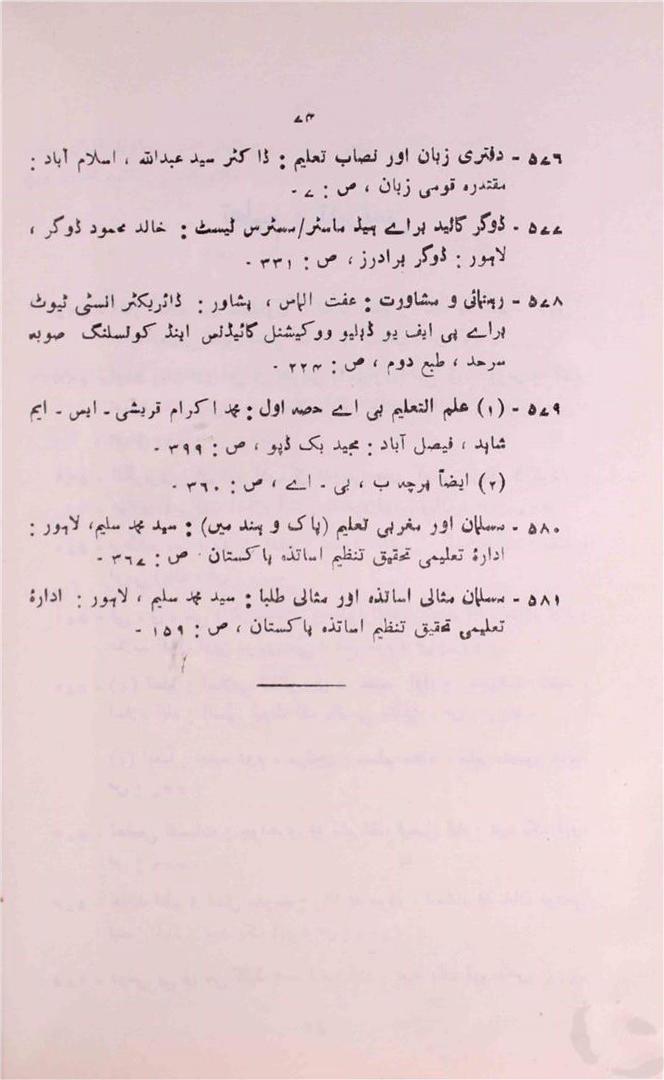 ۷۴
۵۷۶ - دفتری زبان اور نصاب تعلیم : ڈاکٹر سید عبداللہ ، اسلام آباد :
مقتدرہ قومی زبان ، ص : ۷ -
۵۷۷ - ڈوگر گائیڈ براے ہیڈ ماسٹر/مسٹرس ٹیسٹ : خالد محمود ڈوگر ،
لاہور : ڈوگر برادرز ، ص : ۳۳۱ -
۵۷۸ - رہنمائی و مشاورت : عفت الہاس ، پشاور : ڈائریکٹر انسٹی ٹیوٹ
براے پی ایف یو ڈبلیو ووکیشنل گائیڈنس اینڈ کونسلنگ صوبہ
سرحد ، طبع دوم ، ص : ۲۲۴ -
۵۷۹ - (۱) علم التعلیم بی اے حصہ اول : محمد اکرام قریشی - ایس - ایم
شاہد ، فیصل آباد : مجید بک ڈپو ، ص : ۳۹۹ -
(۲) ایضاً پرچہ ب ، بی - اے ، ص : ۳۶۰ -
۵۸۰ - مسلمان اور مغربی تعلیم (پاک و ہند میں) : سید محمد سلیم، لاہور :
ادارۂ تعلیمی تحقیق تنظیم اساتذہ پاکستان ، ص : ۳۶۷ -
۵۸۱ - مسلمان مثالی اساتذہ اور مثالی طلبا : سید محمد سلیم ، لاہور : ادارۂ
تعلیمی تحقیق تنظیم اساتذہ پاکستان ، ص : ۱۵۹ -